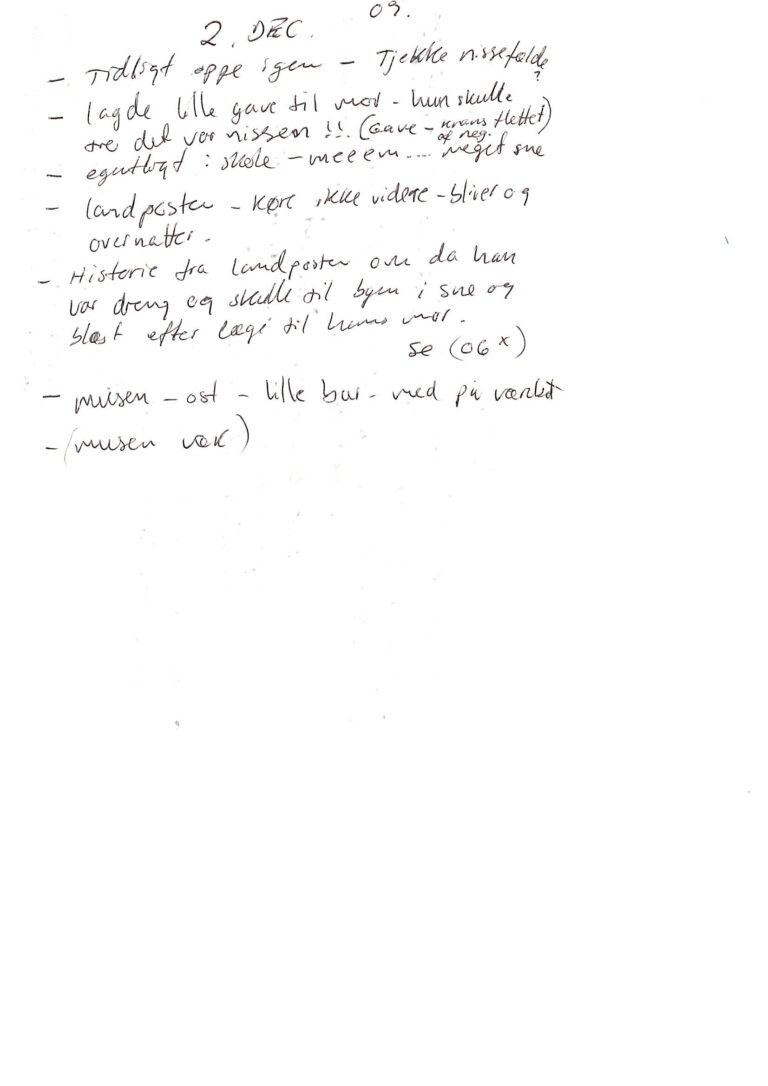 09.
2. DEC.
- Tidligt oppe igen - Tjekke nissefælde
?
- lagde lille gave til mor - hun skulle
tro det var nissen !! (Gave - krans flettet)
af neg.
- : skole - meeen.... meget sne
- landposten - køre ikke videre - bliver og
overnatter.
- Historie fra landposten om da han
var dreng og skulle til byen i sne og
blæst efter læge til hans mor.
se (06 x)
- musen - ost - lille bur - med på værket
- (musen væk)